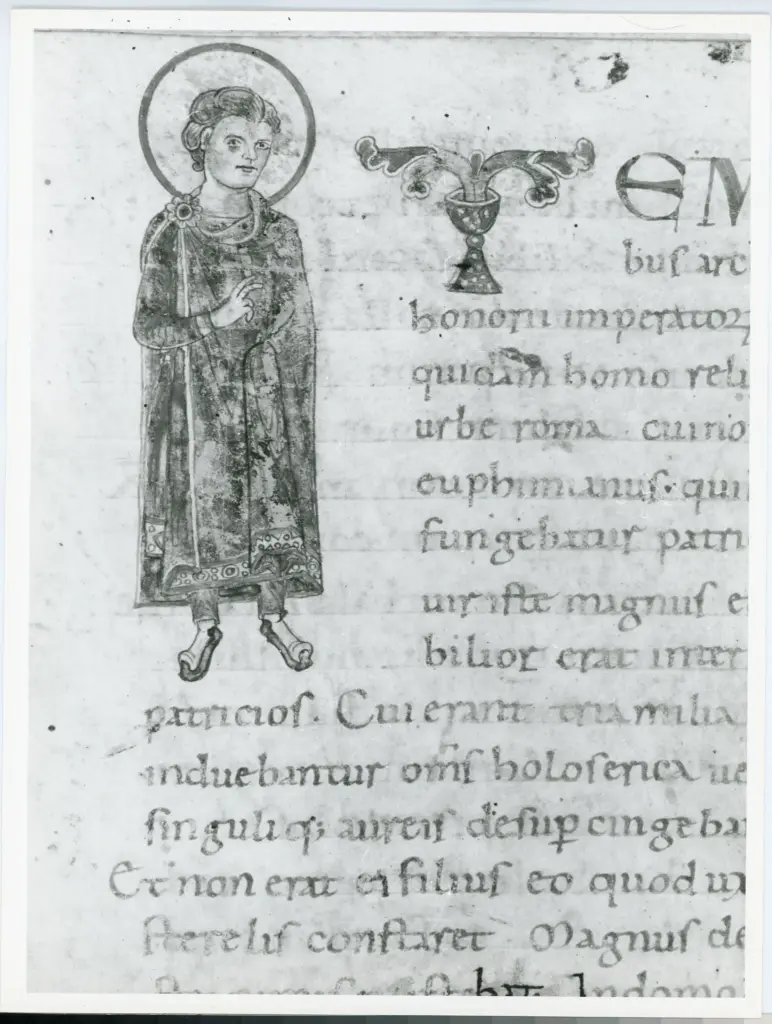 TEM
bus arc
honorii imperatorꝝ
quidam homo reli
urbe roma. cui no
euphimianus. qui
fungebatur patri
uir iste magnus e
bilior erat inter
patricios. Cui erant tria milia
induebantur om̅s holoserica ue
singuliq; aureis desuꝑ cingeba
Et non erat ei filius eo quod ux
sterelis constaret Magnus de
Indomo